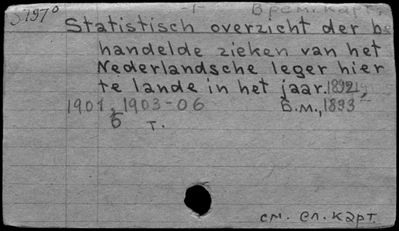 Врем. карт.
Statistisch overzicht der be
handelde zieken van het
Nederlandsche leger hier
te lande in het jaar. 1892,
1901, 1903-06 Б.м., 1893
6 т.
см. сл. карт.